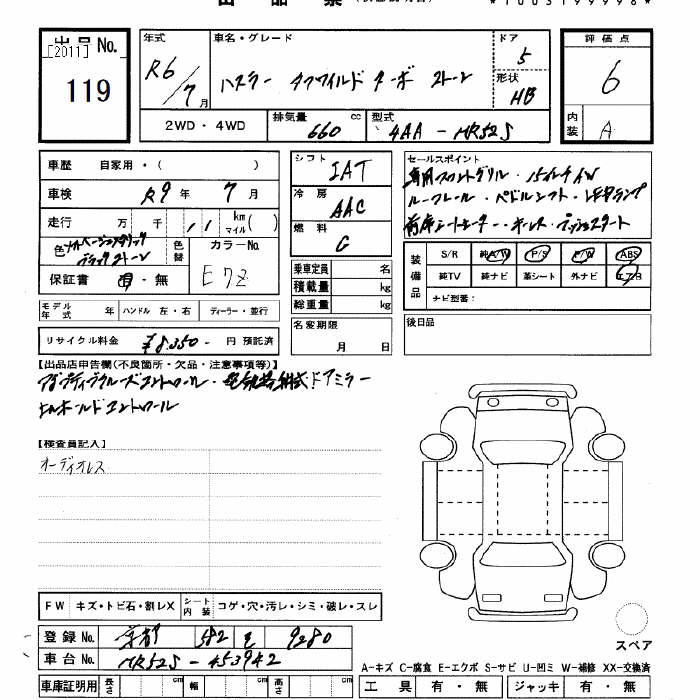 出品票
*1003199998*
出品No.
[2011]
119
年式
R6/7月
車名・グレード
ハスラー タフワイルド ターボ
ドア
5
形状
HB
評価点
6
内装
A
2WD・4WD
排気量 660 cc
型式 4AA-MR52S
車歴 自家用・( )
車検 R9年 7月
走行 万 千 11 km マイル ( )
色
色替
カラーNo.
E7Z
保証書 有・無
モデル年式 年 ハンドル 左・右 ディーラー・並行
リサイクル料金 ¥8,350- 円 預託済
シフト IAT
冷房 AAC
燃料 G
乗車定員 名
積載量 kg
総重量 kg
名変期限
月 日
セールスポイント
専用フロントグリル・15インチAW
ルーフレール・パドルシフト・LEDランプ
前席シートヒーター・キーレス・プッシュスタート
装備品
S/R 純A/W P/S P/W ABS
純TV 純ナビ 革シート 外ナビ エアB
ナビ型番:
後日品
【出品店申告欄(不良箇所・欠品・注意事項等)】
アダプティブクルーズコントロール・電気格納式ドアミラー
ヒルホールドコントロール
【検査員記入】
オーディオレス
FW キズ・トビ石・割レX
シート内装 コゲ・穴・汚レ・シミ・破レ・スレ
登録No. 京都 582 を 9280
車台No. MR52S-453942
車庫証明用 長さ cm 幅 cm 高さ cm
スペア
A-キズ C-腐食 E-エクボ S-サビ U-凹ミ W-補修 XX-交換済
工具 有・無 ジャッキ 有・無